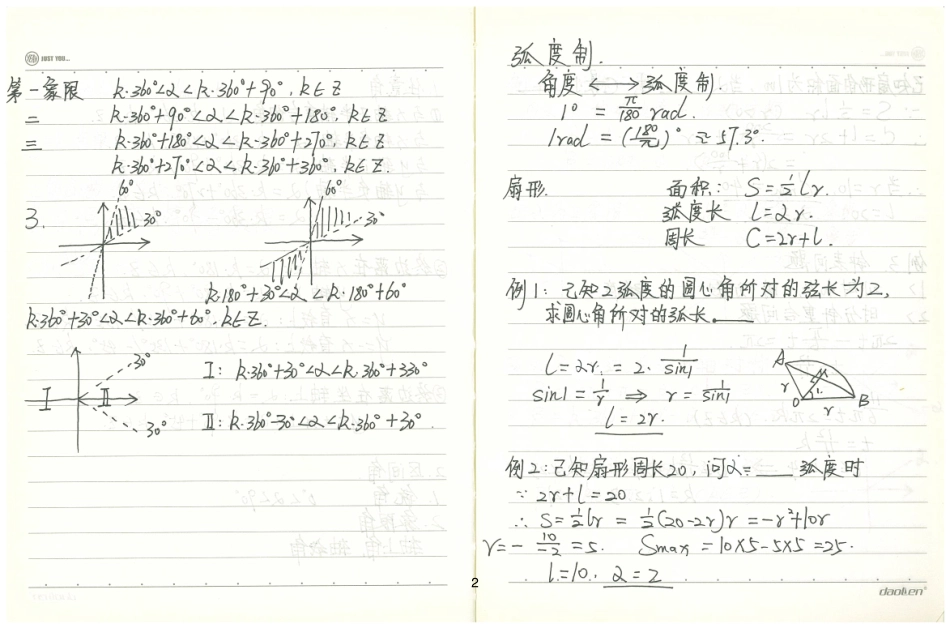 JUST YOU...
第一象限 k·360°<α<k·360°+90°, k∈Z
二 k·360°+90°<α<k·360°+180°, k∈Z
三 k·360°+180°<α<k·360°+270°, k∈Z
k·360°+270°<α<k·360°+360°, k∈Z.
3.
60°
30°
60°
30°
k·180°+30°<α<k·180°+60°
k·360°+30°<α<k·360°+60°, k∈Z.
30°
I
II
30°
I: k·360°+30°<α<k·360°+330°
II: k·360°-30°<α<k·360°+30°.
2
弧度制.
角度 ←→ 弧度制.
1° = π/180 rad.
1rad = (180/π)° ≈ 57.3°.
扇形. 面积: S=½lr.
弧度长 l=2r.
周长 C=2r+l.
例1: 已知2弧度的圆心角所对的弦长为2,
求圆心角所对的弧长. ____
l=2r = 2·1/sin1
sin1=1/r ⇒ r=1/sin1
l=2r.
A
r
1
O
r
B
例2:已知扇形周长20,问α=____弧度时
∵ 2r+l=20
∴ S=½lr = ½(20-2r)r = -r²+10r
r=-10/-2=5. Smax=10×5-5×5=25.
l=10, α=2
daolien®